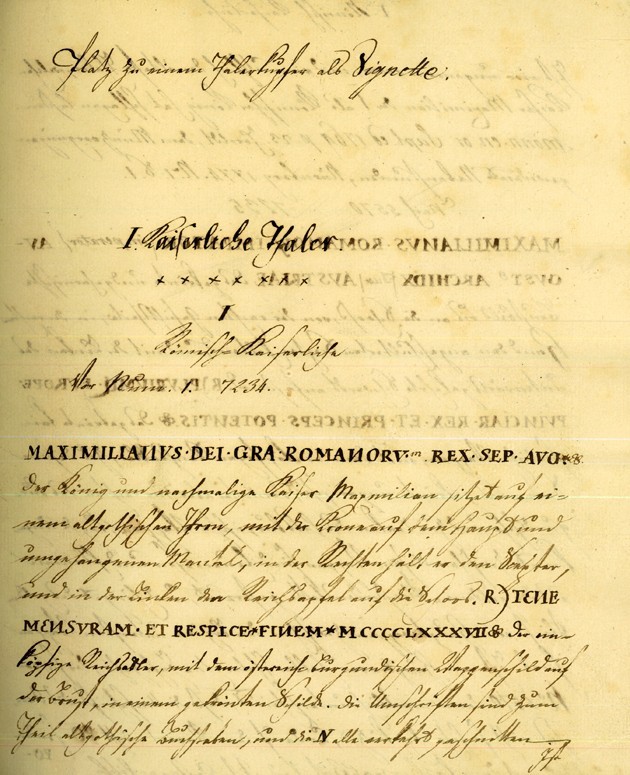 Platz zu einem Thalerkupfer als Vignette.
I. Kaiserliche Thaler.
× × × × × × ×
I
Römisch-Kaiserliche
Vor Num. 1. 7234.
MAXIMILIANVS·DEI·GRA·ROMANORV·m REX·SEP·AVG
Der König und nachmalige Kaiser Maxmilian sitzt auf ei-
nem altgothischen Thron, mit der Krone auf dem Haupt und
umgehangenen Mantel, in der Rechten hält er den Scepter,
und in der Linken den Reichsapfel auf die Schoos. R) TENE
MENSVRAM·ET RESPICE*FINEM*MCCCCLXXXVII der ein-
köpfige Reichsadler, mit dem östereich-burgundischen Wappenschild auf
der Brust, in einem gekrönten Schilde. Die Umschriften sind zum
Theil altgothische Buchstaben, und die N alle verkehrt geschnitten.